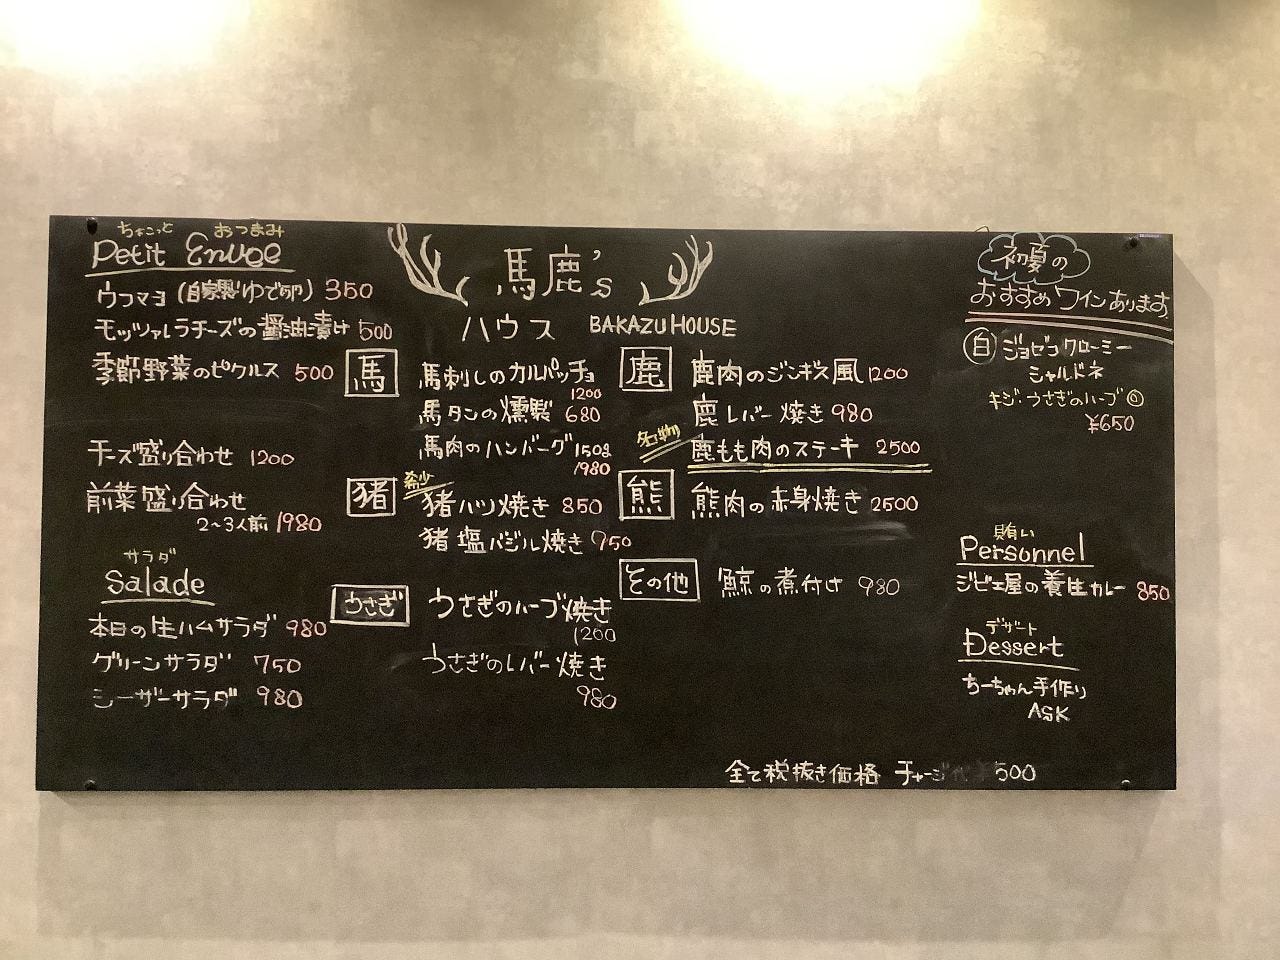 ちょこっと おつまみ
Petit Envge
ウフマヨ (自家製ゆで卵) 350
モッツァレラチーズの醤油漬け 500
季節野菜のピクルス 500
チーズ盛り合わせ 1200
前菜盛り合わせ
2〜3人前 1980
サラダ
Salade
本日の生ハムサラダ 980
グリーンサラダ 750
シーザーサラダ 980
馬鹿's
ハウス BAKAZU HOUSE
馬
馬刺しのカルパッチョ
1200
馬タンの燻製 680
馬肉のハンバーグ 150g
1980
猪
希少
猪ハツ焼き 850
猪塩バジル焼き 950
うさぎ
うさぎのハーブ焼き
1200
うさぎのレバー焼き
980
鹿
鹿肉のジンギス風 1200
鹿レバー焼き 980
名物
鹿もも肉のステーキ 2500
熊
熊肉の赤身焼き 2500
その他
鯨の煮付け 980
初夏の
おすすめワインあります
白 ジョゼフクローミー
シャルドネ
キジ・うさぎのハーブ◎
¥650
賄い
Personnel
ジビエ屋の養生カレー 850
デザート
Dessert
ちーちゃん手作り
ASK
全て税抜き価格 チャージ代 ¥500